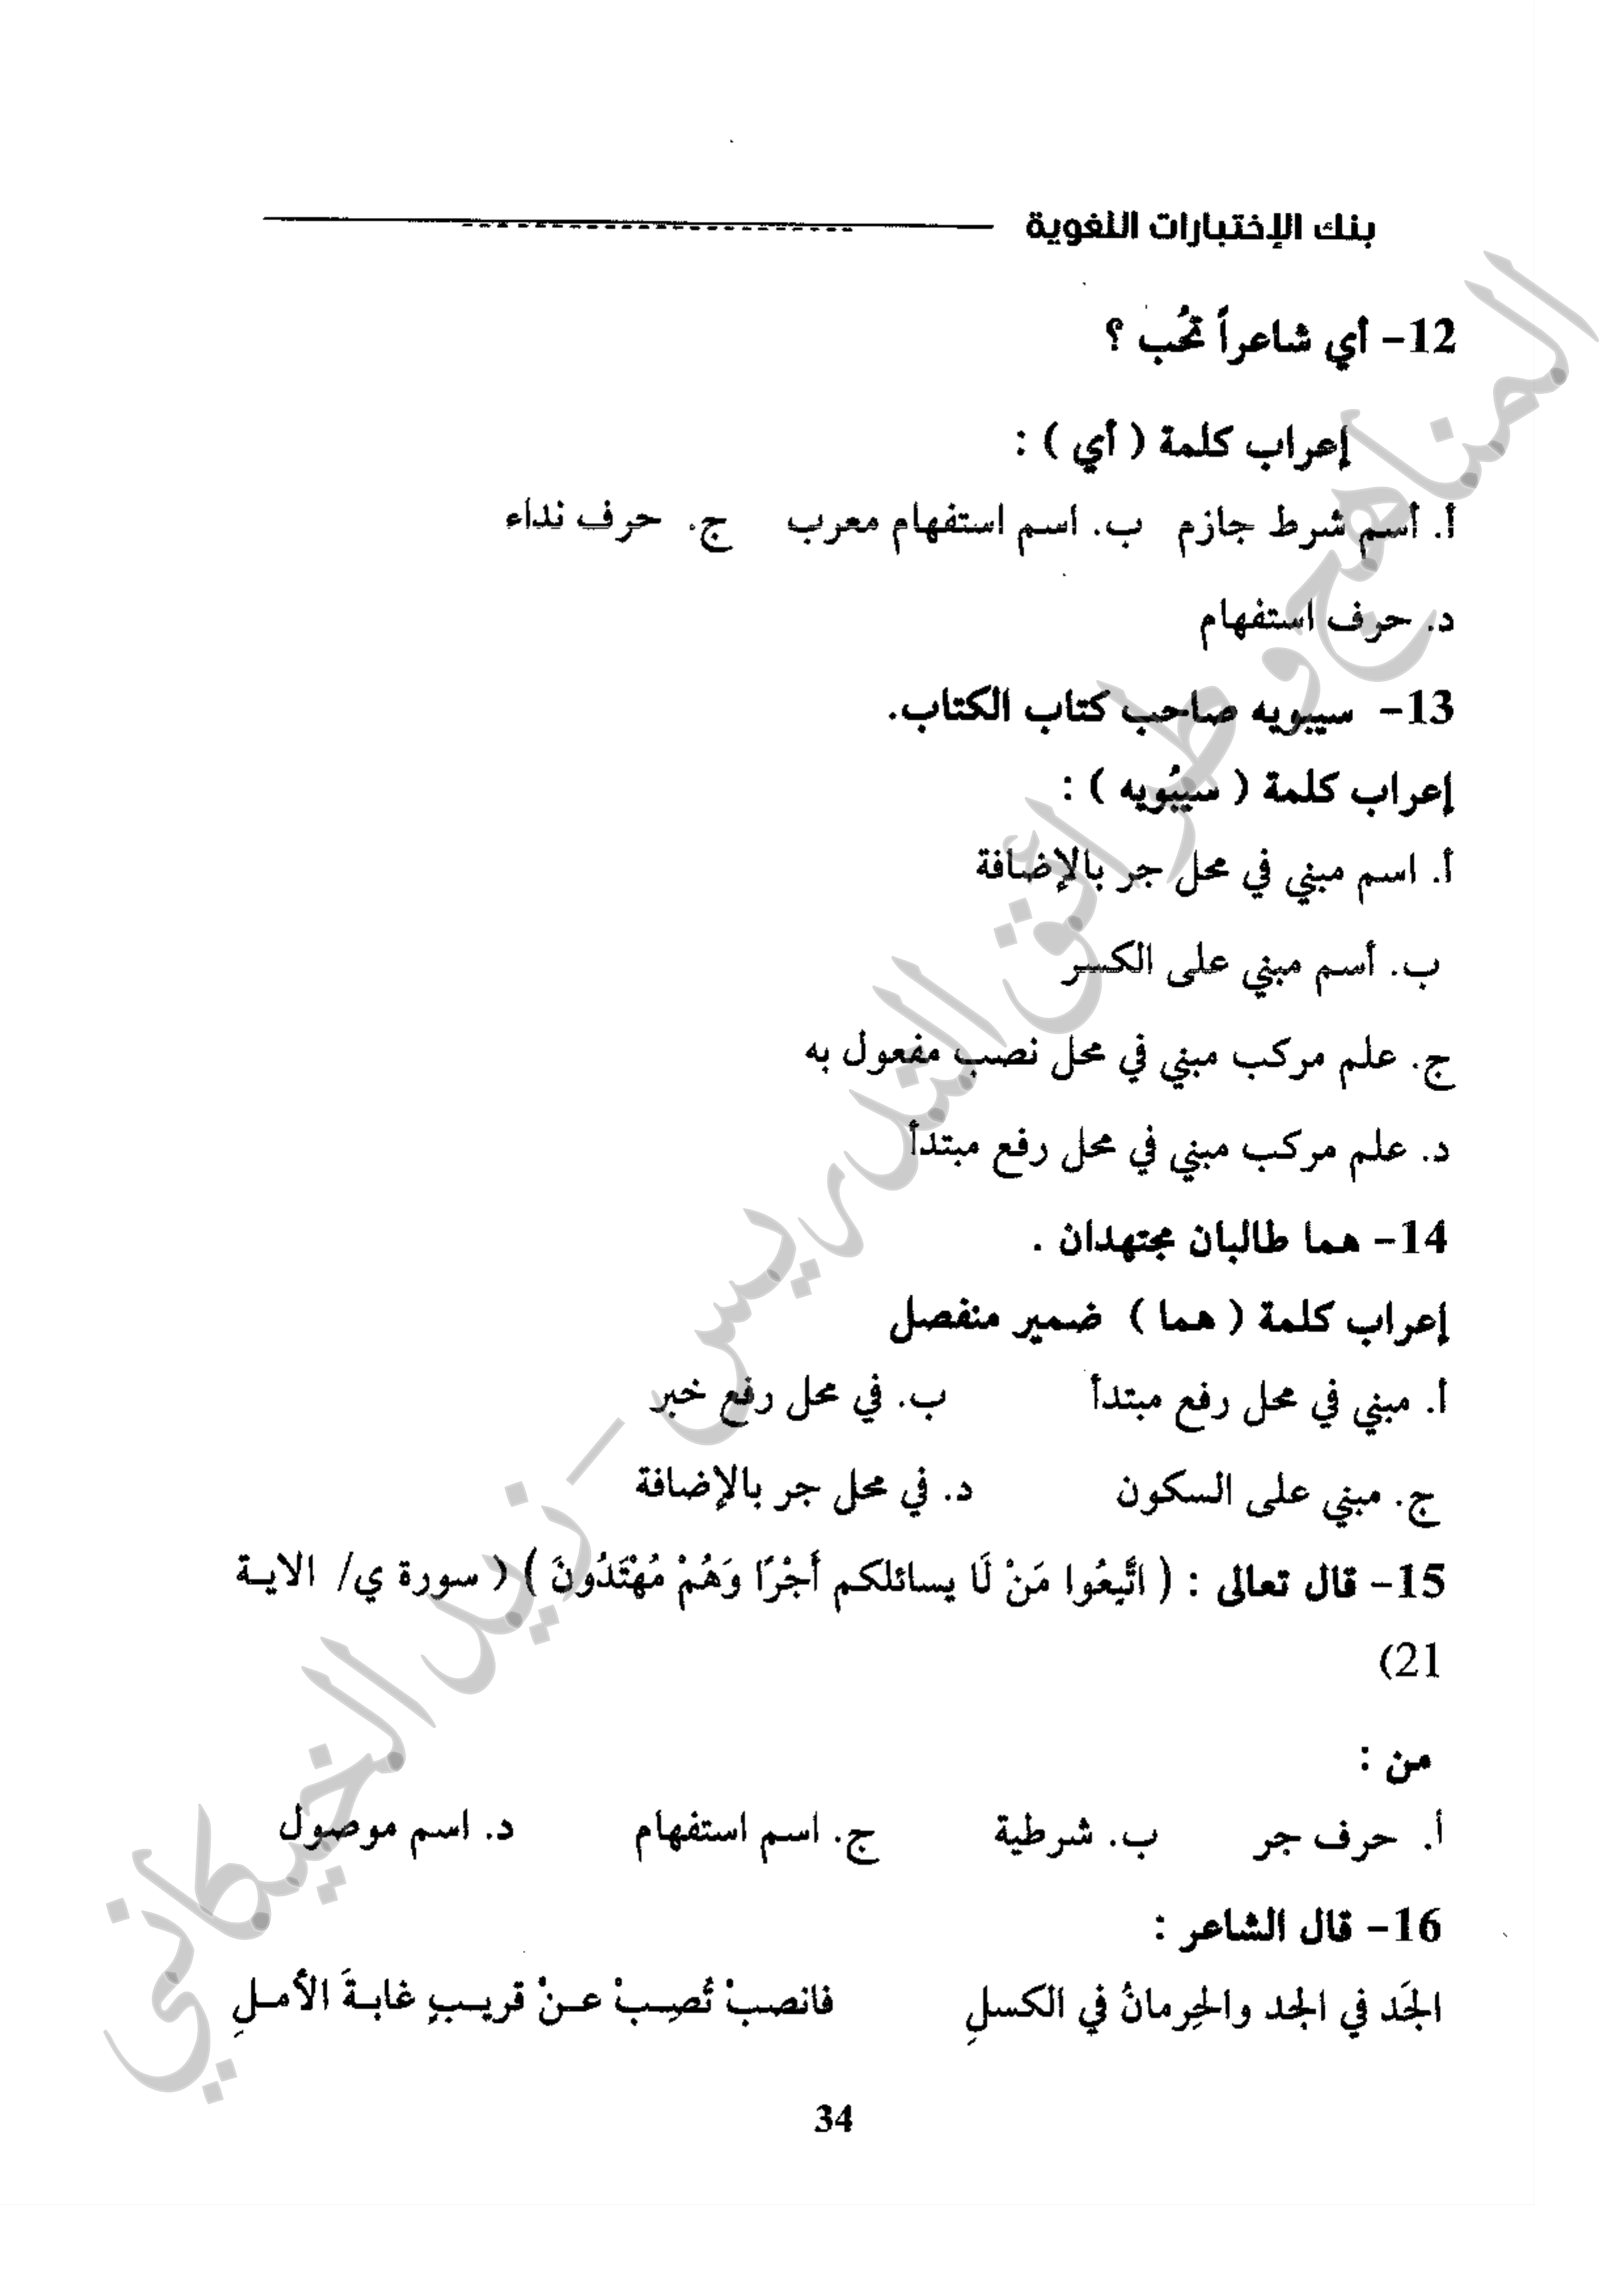 بنك الإختبارات اللغوية
12- أي شاعراً تحُب ؟
إعراب كلمة ( أي ) :
أ. أسم شرط جازم ب. اسم استفهام معرب ج. حرف نداء
د. حرف استفهام
13- سيبويه صاحب كتاب الكتاب.
إعراب كلمة ( سيبُويه ) :
أ. اسم مبني في محل جر بالإضافة
ب. أسم مبني على الكسر
ج. علم مركب مبني في محل نصب مفعول به
د. علم مركب مبني في محل رفع مبتدأ
14- هما طالبان مجتهدان .
إعراب كلمة ( هما ) ضمير منفصل
أ. مبني في محل رفع مبتدأ ب. في محل رفع خبر
ج. مبني على السكون د. في محل جر بالإضافة
15- قال تعالى : ( اتَّبِعُوا مَنْ لَا يسائلكم أَجْرًا وَهُمْ مُهْتَدُونَ ) ( سورة ي/ الاية
21)
من :
أ. حرف جر ب. شرطية ج. اسم استفهام د. اسم موصول
16- قال الشاعر :
الجَد في الجد والحِرمانُ في الكسلِ فانصبْ تُصِبْ عنْ قريبٍ غابةَ الأملِ
34
المناهج وطرائق التدريس - زيد الخيكاني